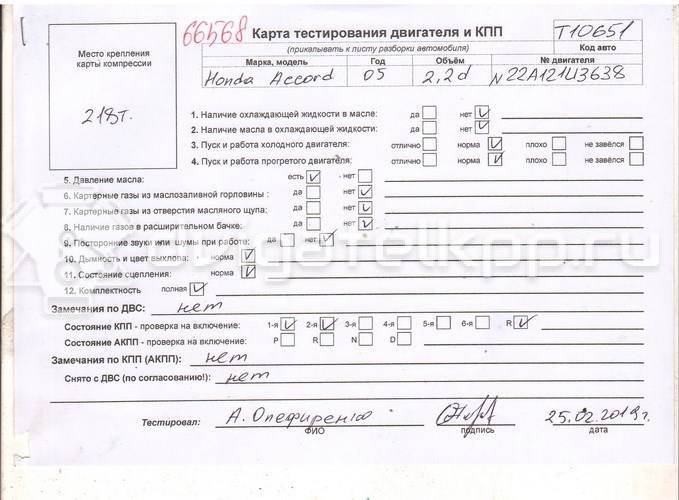 66568 Карта тестирования двигателя и КПП T10651
(прикалывать к листу разборки автомобиля) Код авто
Место крепления карты компрессии
Марка, модель Год Объём № двигателя
Honda Accord 05 2,2d N22A12143638
218т.
1. Наличие охлаждающей жидкости в масле: да нет V
2. Наличие масла в охлаждающей жидкости: да нет V
3. Пуск и работа холодного двигателя: отлично норма V плохо не завёлся
4. Пуск и работа прогретого двигателя: отлично норма V плохо не завёлся
5. Давление масла: есть V нет
6. Картерные газы из маслозаливной горловины : да нет V
7. Картерные газы из отверстия масляного щупа: да нет V
8. Наличие газов в расширительном бачке: да нет V
9. Посторонние звуки или шумы при работе: да нет V
10. Дымность и цвет выхлопа: норма V
11. Состояние сцепления: норма V
12. Комплектность полная V
dvigatelkpp.ru
Замечания по ДВС: нет
Состояние КПП - проверка на включение: 1-я V 2-я V 3-я 4-я 5-я 6-я R V
Состояние АКПП - проверка на включение: P R N D
Замечания по КПП (АКПП): нет
Снято с ДВС (по согласованию!): нет
Тестировал: А. Олефиренко 25.02.2019г.
ФИО подпись дата